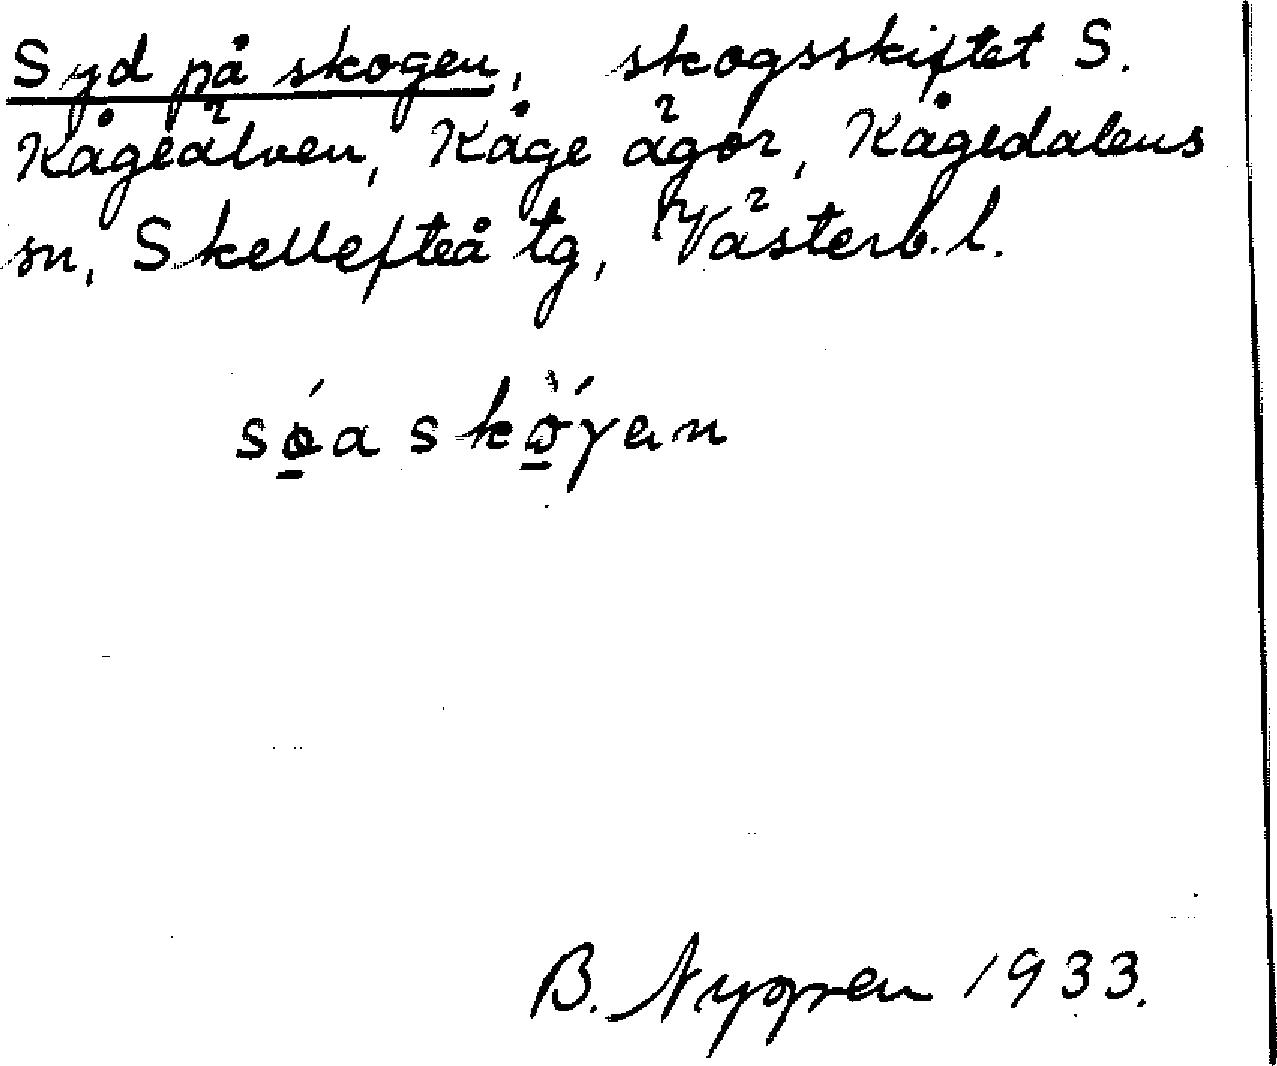 Syd på skogen, skogsskiftet S.
Kågeälven, Kåge ägor, Kågedalens
sn, Skellefteå tg, Västerb. l.
B. Nygren 1933.